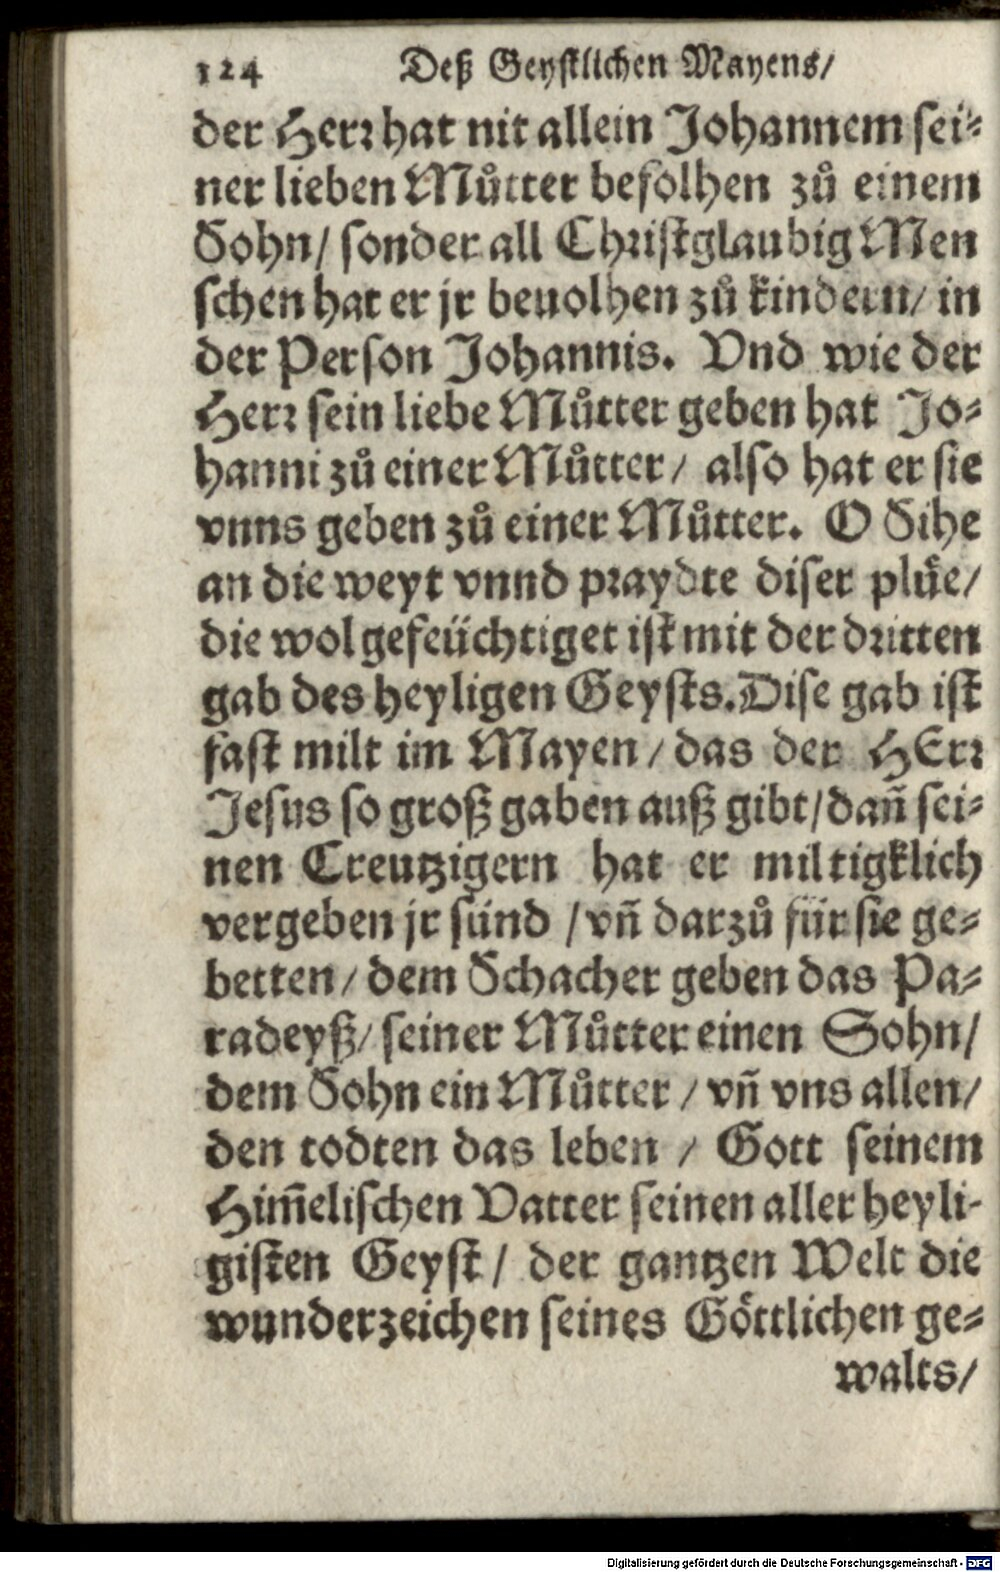 124 Deß Geystlichen Mayens/
der Herr hat nit allein Johannem sei⸗
ner lieben Můtter befolhen zů einem
Sohn/ sonder all Christglaubig Men
schen hat er jr beuolhen zů kindern/ in
der Person Johannis. Vnd wie der
Herr sein liebe Můtter geben hat Jo⸗
hanni zů einer Můtter/ also hat er sie
vnns geben zů einer Můtter. O Sihe
an die weyt vnnd praydte diser plüe/
die wol gefeüchtiget ist mit der dritten
gab des heyligen Geysts. Dise gab ist
fast milt im Mayen/ das der HErr
Jesus so groß gaben auß gibt/ dañ sei⸗
nen Creutzigern hat er miltigklich
vergeben jr sünd / vñ darzů für sie ge⸗
betten/ dem Schacher geben das Pa⸗
radeyß/ seiner Můtter einen Sohn/
dem Sohn ein Můtter / vñ vns allen/
den todten das leben / Gott seinem
Him̃elischen Vatter seinen aller heyli⸗
gisten Geyst/ der gantzen Welt die
wunderzeichen seines Göttlichen ge⸗
walts/
Digitalisierung gefördert durch die Deutsche Forschungsgemeinschaft - DFG